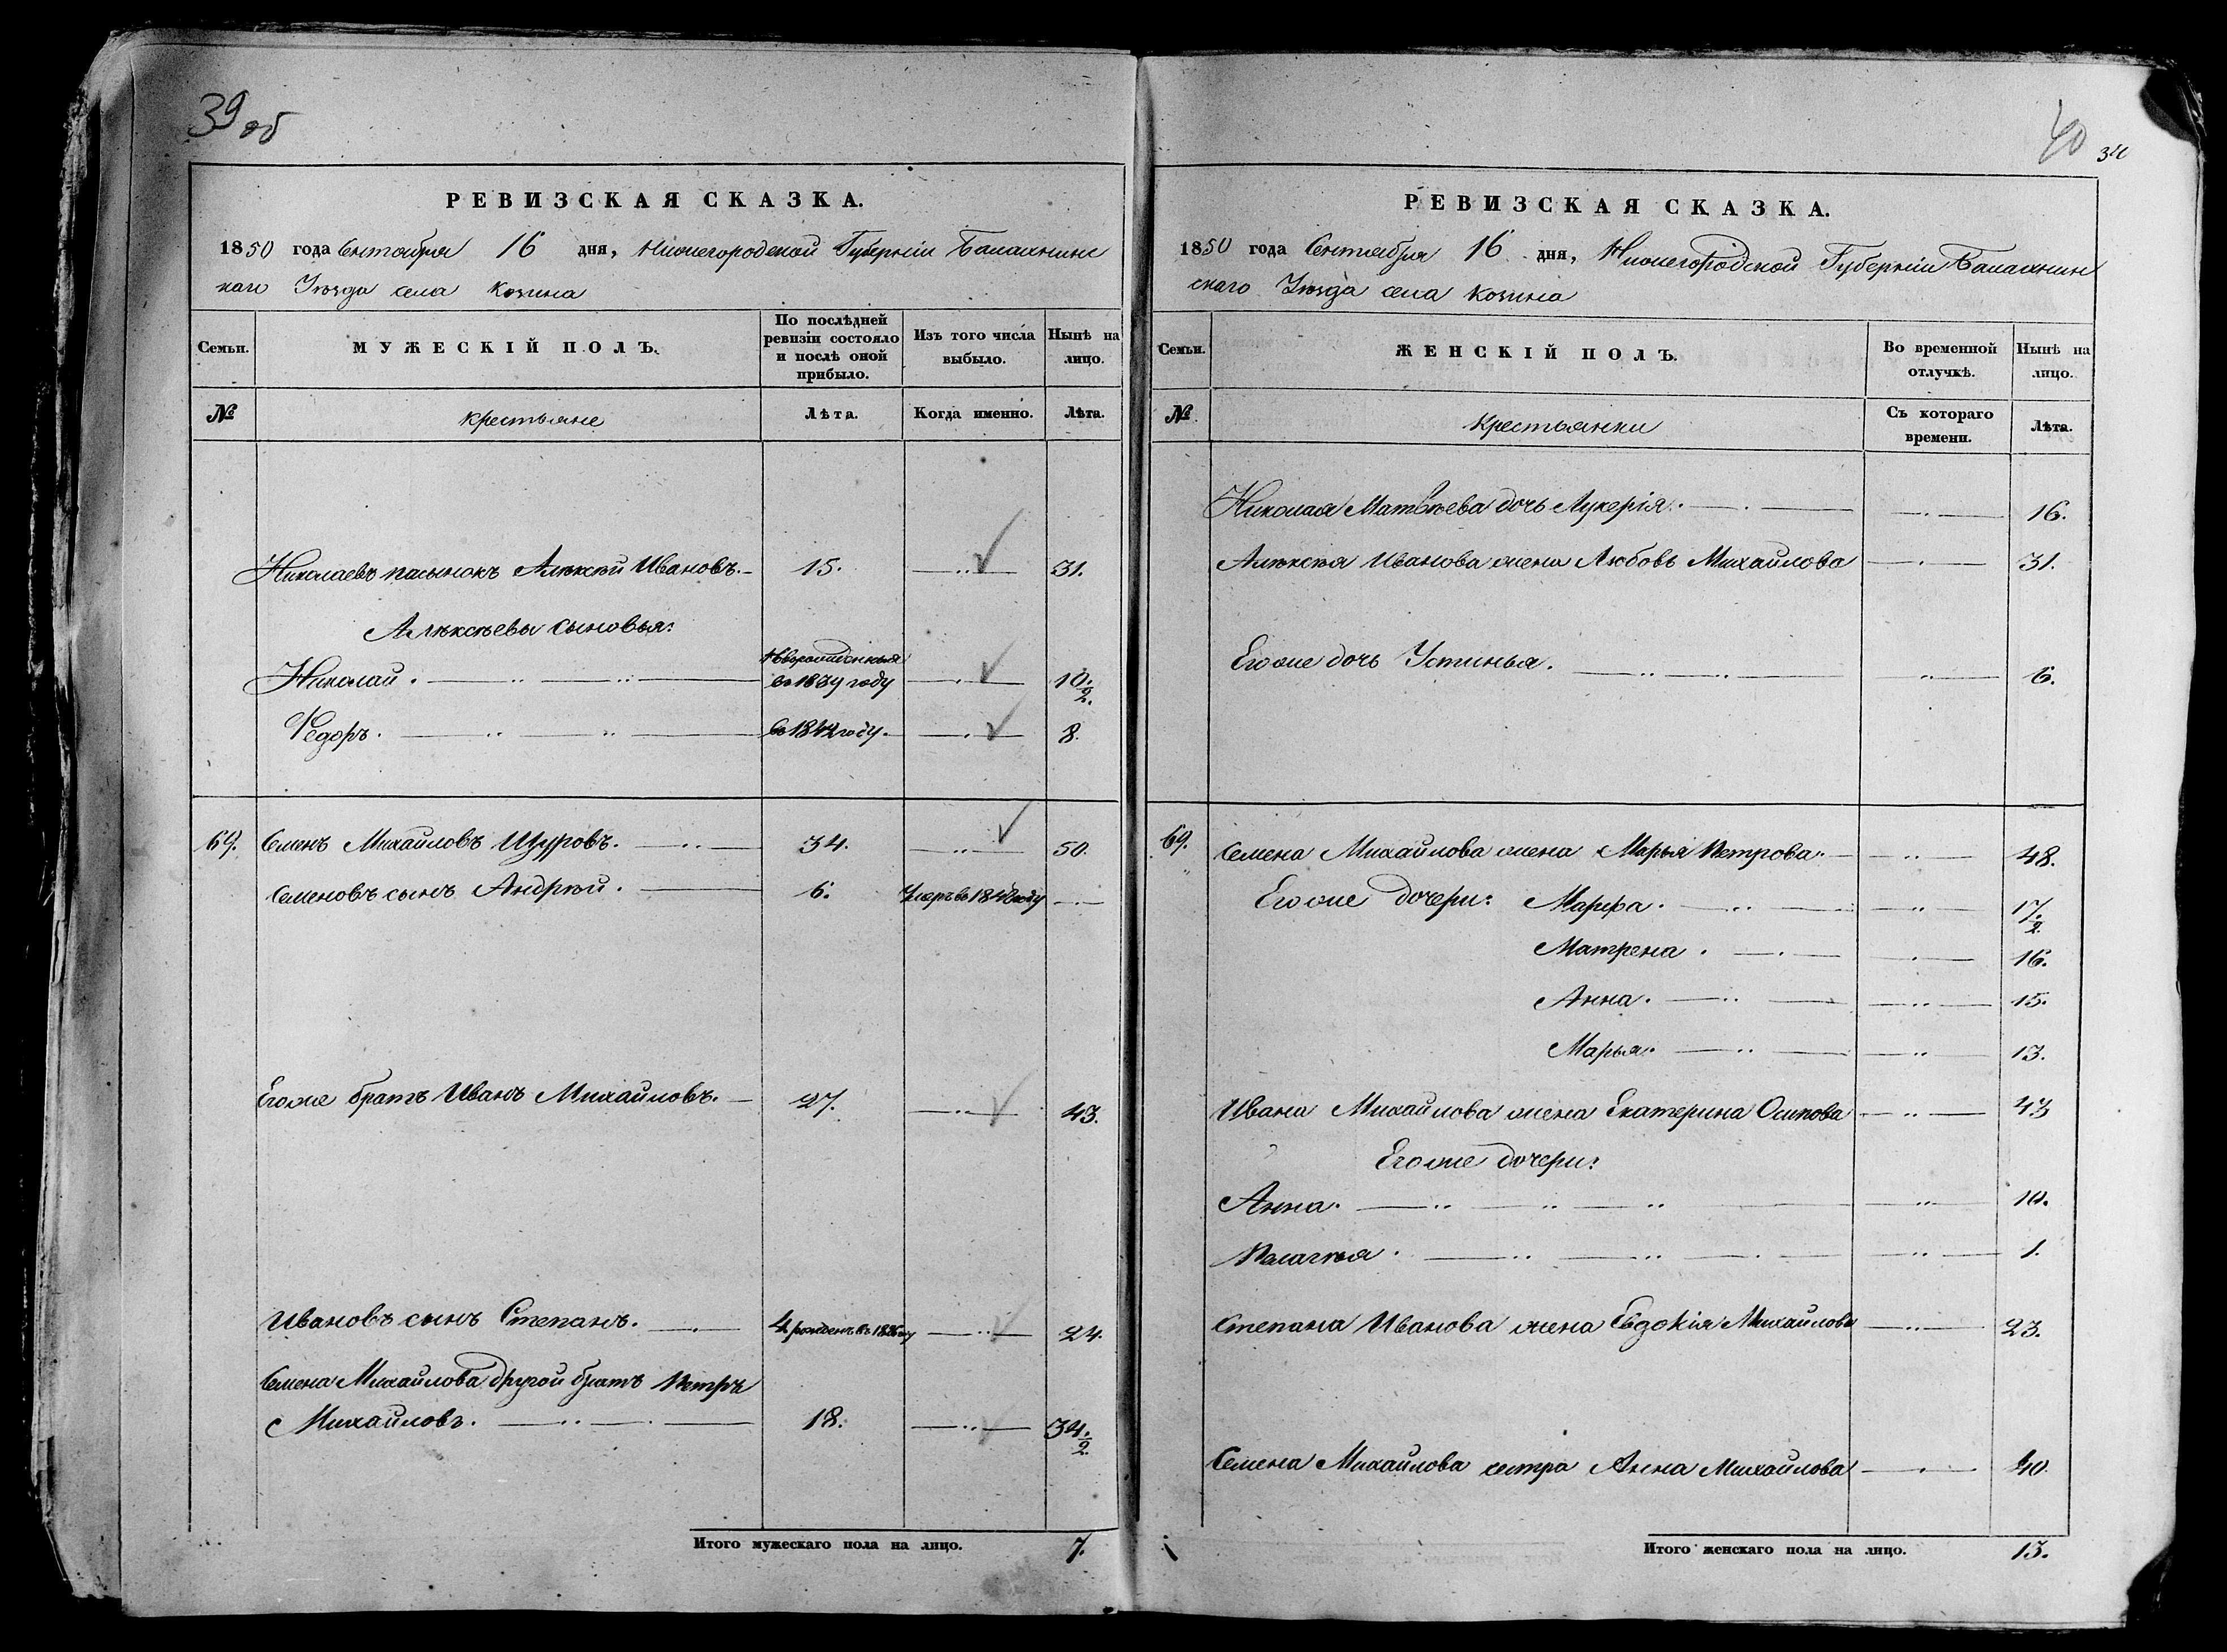 39 об
РЕВИЗСКАЯ СКАЗКА.
1850 года Сентября 16 дня, Нижегородской Губерніи Балахнинс
каго Уѣзда села Козина
Семьи.
МУЖЕСКІЙ ПОЛЪ.
По послѣдней
ревизіи состояло
и послѣ оной
прибыло.
Изъ того числа
выбыло.
Нынѣ на
лицо.
№
крестьяне
Лѣта.
Когда именно.
Лѣта.
Николаевъ пасынокъ Алѣксѣй Ивановъ. 15. 31.
Алѣксѣевы сыновья:
Николай. въ 1839 году 10 1/2.
Федоръ. въ 1842 году. 8.
69. Семенъ Михайловъ Щуровъ. 34. 50.
Семеновъ сынъ Андрѣй. 6. Умеръ въ 1848 году
Егоже братъ Иванъ Михайловъ. 27. 43.
Ивановъ сынъ Степанъ. 24.
Семена Михайлова другой братъ Петръ
Михайловъ. 18. 34 1/2.
Итого мужескаго пола на лицо. 7.
40
РЕВИЗСКАЯ СКАЗКА.
1850 года Сентября 16 дня, Нижегородской Губерніи Балахнин
скаго Уѣзда села Козина
Семьи.
ЖЕНСКІЙ ПОЛЪ.
Во временной
отлучкѣ.
Нынѣ на
лицо.
№
Крестьянки
Съ котораго
времени.
Лѣта.
Николая Матвѣева дочь Лукерія. 16.
Алѣксѣя Иванова жена Любовь Михайлова 31.
Егоже дочь Устинья. 6.
69. Семена Михайлова жена Марья Петрова. 48.
Егоже дочери: Марфа. 17 1/2.
Матрена. 16.
Анна. 15.
Марья. 13.
Ивана Михайлова жена Екатерина Осипова 43
Егоже дочери:
Анна. 10.
Пелагѣя. 1.
Степана Иванова жена Евдокія Михайлова 23.
Семена Михайлова сестра Анна Михайлова 40.
Итого женскаго пола на лицо. 13.